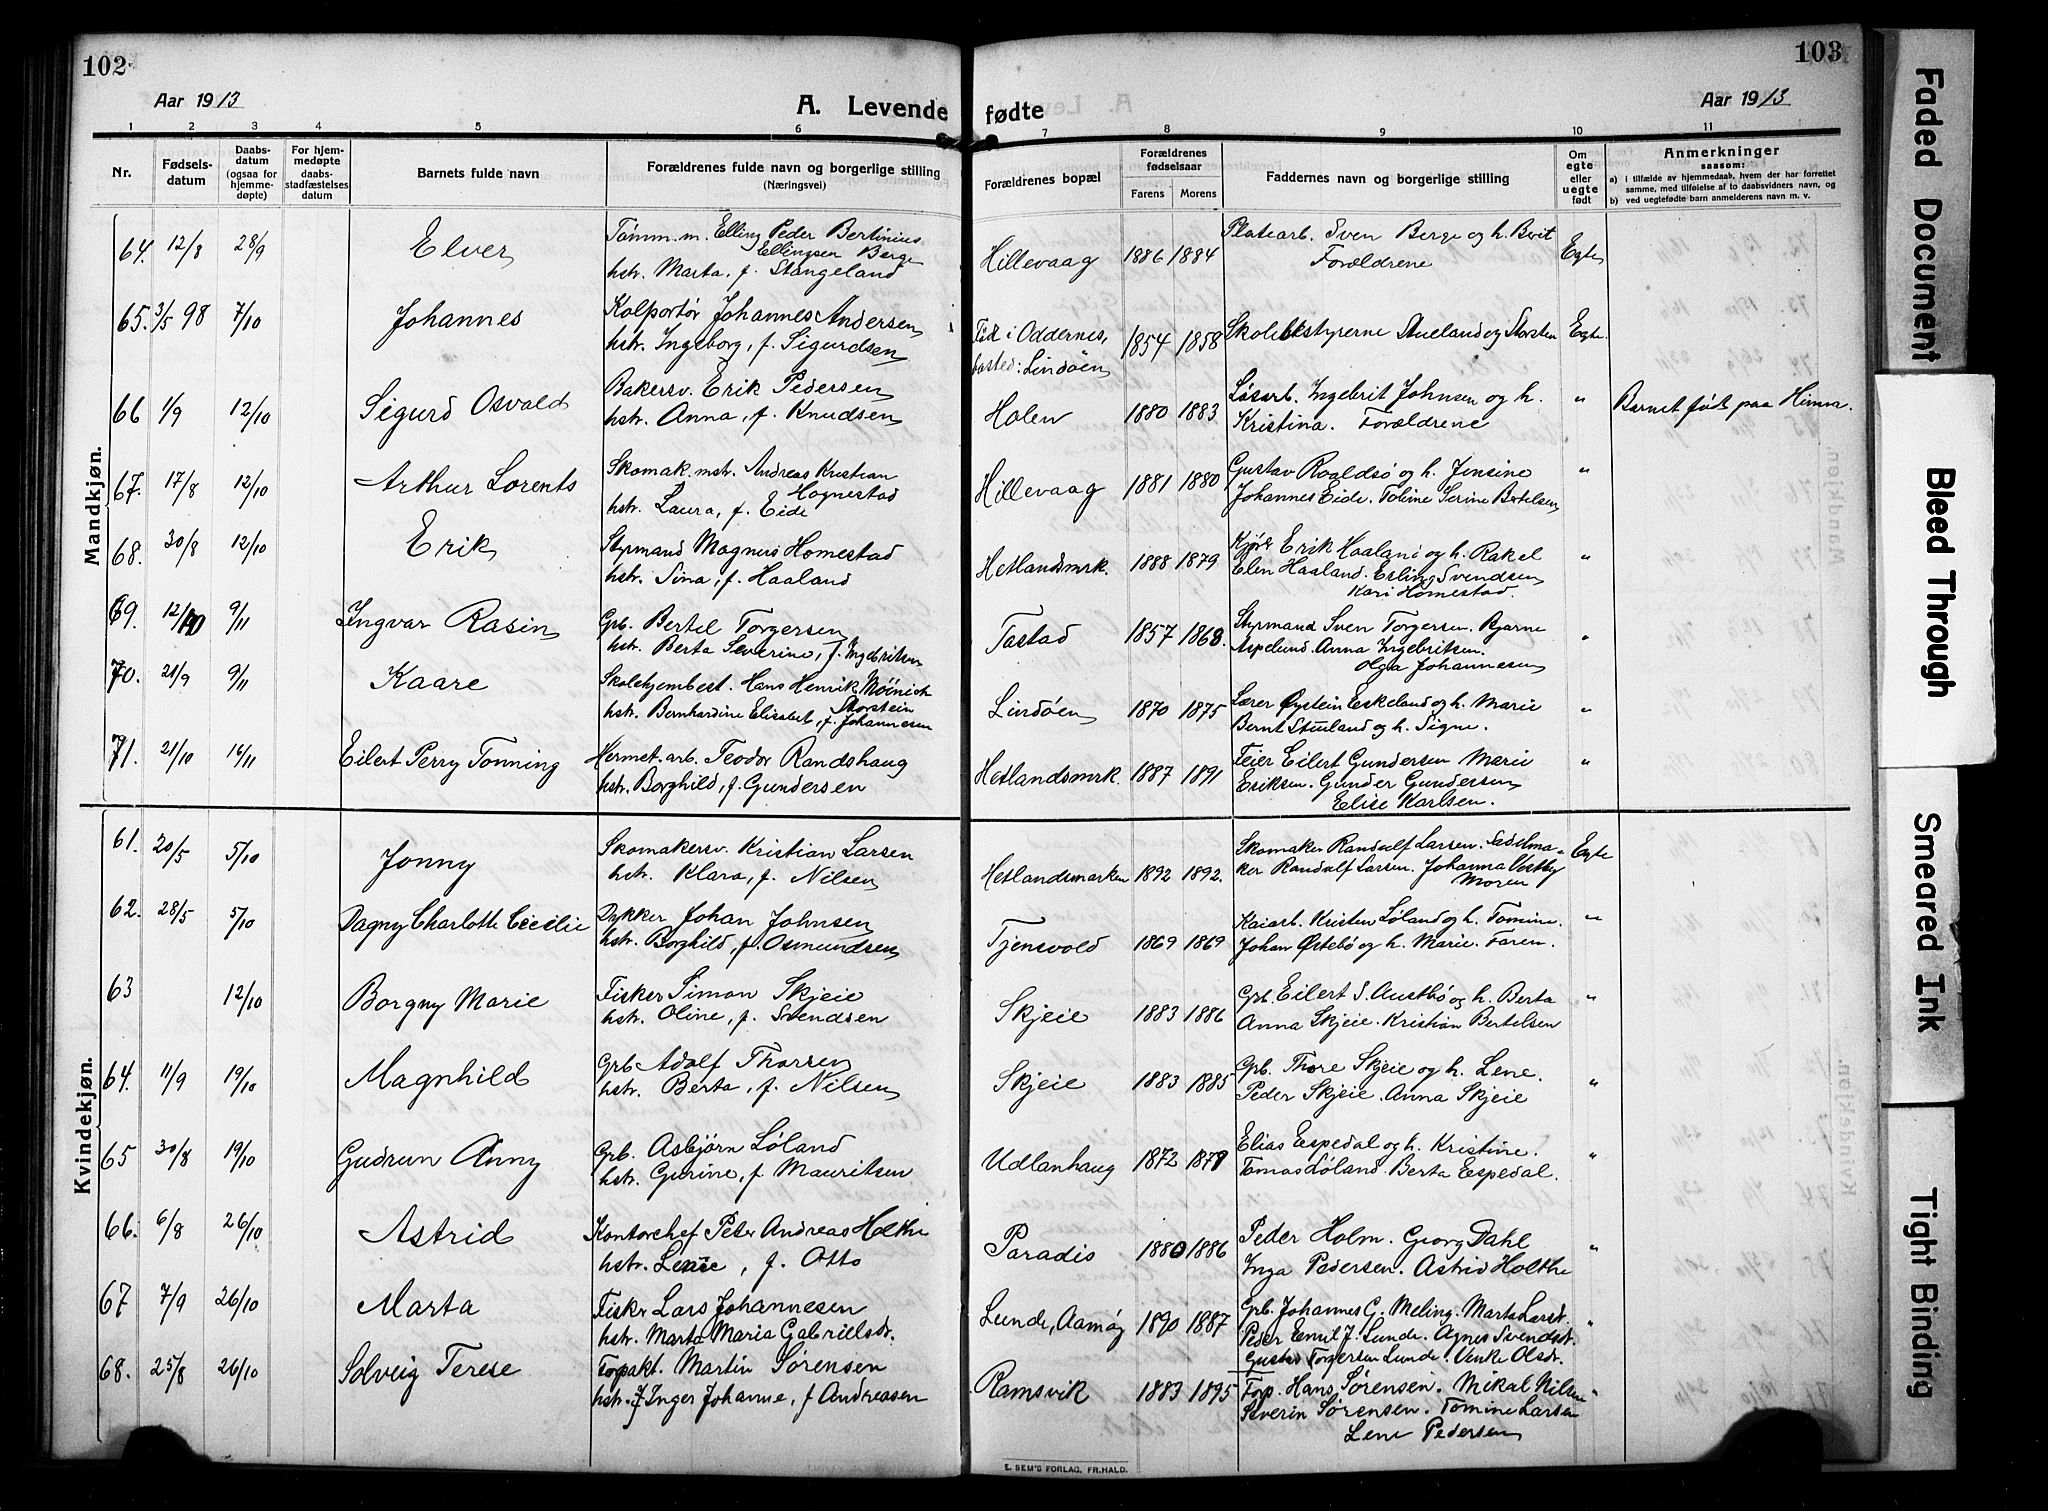 102
Aar 1913
A. Levende
1 2 3 4 5 6
Nr.
Fødsels-
datum
Daabs-
datum
(ogsaa for
hjemme-
døpte)
For hjem-
medøpte
daabs-
stadfæstelses
datum
Barnets fulde navn
Forældrenes fulde navn og borgerlige stilling
(Næringsvei)
Mandkjøn.
64. 12/8 28/9 Elver
Tømm.m. Elling Peder Bertinius
Ellingsen Berge
hstr. Marta, f. Stangeland
65. 3/5 98 7/10 Johannes
Kolportør Johannes Andersen
hstr. Ingeborg, f. Sigurdsen
66 1/9 12/10 Sigurd Osvald
Bakersv. Erik Pedersen
hstr. Anna, f. Knudsen
67. 17/8 12/10 Arthur Lorents
Skomak.mstr. Andreas Kristian
Hognestad
hstr. Laura, f. Eide
68. 30/8 12/10 Erik
Styrmand Magnus Homestad
hstr. Sina, f. Haaland
69. 12/10 9/11 Ingvar Rasin
Grb. Bertel Torgersen
hstr. Berta Severine, f. Ingebritsen
70. 21/9 9/11 Kaare
Skolehjembest. Hans Henrik Møinich
Storstein
hstr. Bernhardine Elisabet, f. Johannesen
71. 21/10 16/11 Eilert Perry Tonning
Hermet.arb. Teodor Randshaug
hstr. Borghild, f. Gundersen
Kvindekjøn.
61. 20/5 5/10 Jonny
Skomakersv. Kristian Larsen
hstr. Klara, f. Nilsen
62. 28/5 5/10 Dagny Charlotte Cecilie
Dykker Johan Johnsen
hstr. Borghild, f. Osmundsen
63 12/10 Borgny Marie
Fisker Simon Skjeie
hstr. Oline, f. Svendsen
64. 11/9 19/10 Magnhild
Grb. Adolf Thorsen
hstr. Berta, f. Nilsen
65 30/8 19/10 Gudrun Anny
Grb. Asbjørn Løland
hstr. Gurine, f. Mauritsen
66. 6/8 26/10 Astrid
Kontorchef Peter Andreas Holthe
hstr. Lenie, f. Otto
67 7/9 26/10 Marta
Fisker Lars Johannesen
hstr. Marta Maria Gabrielsdr.
68. 25/8 26/10 Solveig Terese
Forpakt. Martin Sørensen
hstr. Inger Johanne, f Andreasen
103
Aar 1913
fødte
7 8 9 10 11
Forældrenes bopæl
Forældrenes
fødselsaar
Farens Morens
Faddernes navn og borgerlige stilling
Om
egte
eller
uegte
født
Anmerkninger
saasom:
a) i tilfælde av hjemmedaab, hvem der har forrettet
samme, med tilføielse af to daabsvidners navn, og
b) ved uegtefødte barn anmelderens navn m. v.
Hillevaag 1886 1884
Platearb. Sven Berge og h. Berit
Forældrene
Egte
Född i Oddernes,
bosted: Lindøen
1854 1858 Skolebestyrerne Stueland og Storsten Egte.
Holen 1880 1883
Løsarb. Ingebrit Johnsen og h.
Kristina. Forældrene
" Barnet født paa Himna.
Hillevaag 1881 1880
Gustav Roaldsø og h. Jensine
Johannes Eide. Toline Serine Bertelsen
"
Hetlandsmrk. 1888 1879
Kjør Erik Haaland og h. Rakel
Elen Haaland. Erling Svendsen
Kari Homestad.
"
Tastad 1857 1868.
Styrmand Sven Torgersen. Bjarne
Aspelund. Anna Ingebritsen.
Olga Johannesen
"
Lindøen 1870 1875
Lærer Øystein Eskeland og h. Marie
Bernt Stueland og h. Signe.
"
Hetlandsmrk. 1887 1891
Feier Eilert Gundersen Marie
Eriksen. Gunder Gundersen
Elise Karlsen.
"
Hetlandsmarken 1892 1892.
Skomaker Randolf Larsen. Sadelma-
ker Randolf Larsen. Johanna Vestby
Moren
Egte
Tjensvold 1869 1869
Kaiarb. Kristen Løland og h. Tomine.
Johan Østebø og h. Marie. Faren.
"
Skjeie 1883 1886
Grb. Eilert S. Austbø og h. Berta
Anna Skjeie. Kristian Bertelsen
"
Skjeie 1883 1885
Grb. Thore Skjeie og h. Lene.
Peder Skjeie. Anna Skjeie
"
Udlanhaug 1872 1878
Elias Espedal og h. Kristine.
Tomas Løland. Berta Espedal.
"
Paradis 1880 1886
Peder Holm. Georg Dahl
Inga Pedersen. Astrid Holthe
"
Lunde, Aamøy 1890 1887
Grb. Johannes G. Meling. Marta Larsd.
Peder Emil J. Lunde. Agnes Svendsd.
Gustav Torgersen Lunde. Venke Olsdr.
"
Ramsvik 1883 1895
Forp. Hans Sørensen. Mikal Nilsen
Severin Sørensen. Tomine Larsen
Lene Pedersen
"
E. SEM'S FORLAG, FR.HALD.
Faded Document
Bleed Through
Smeared Ink
Tight Binding